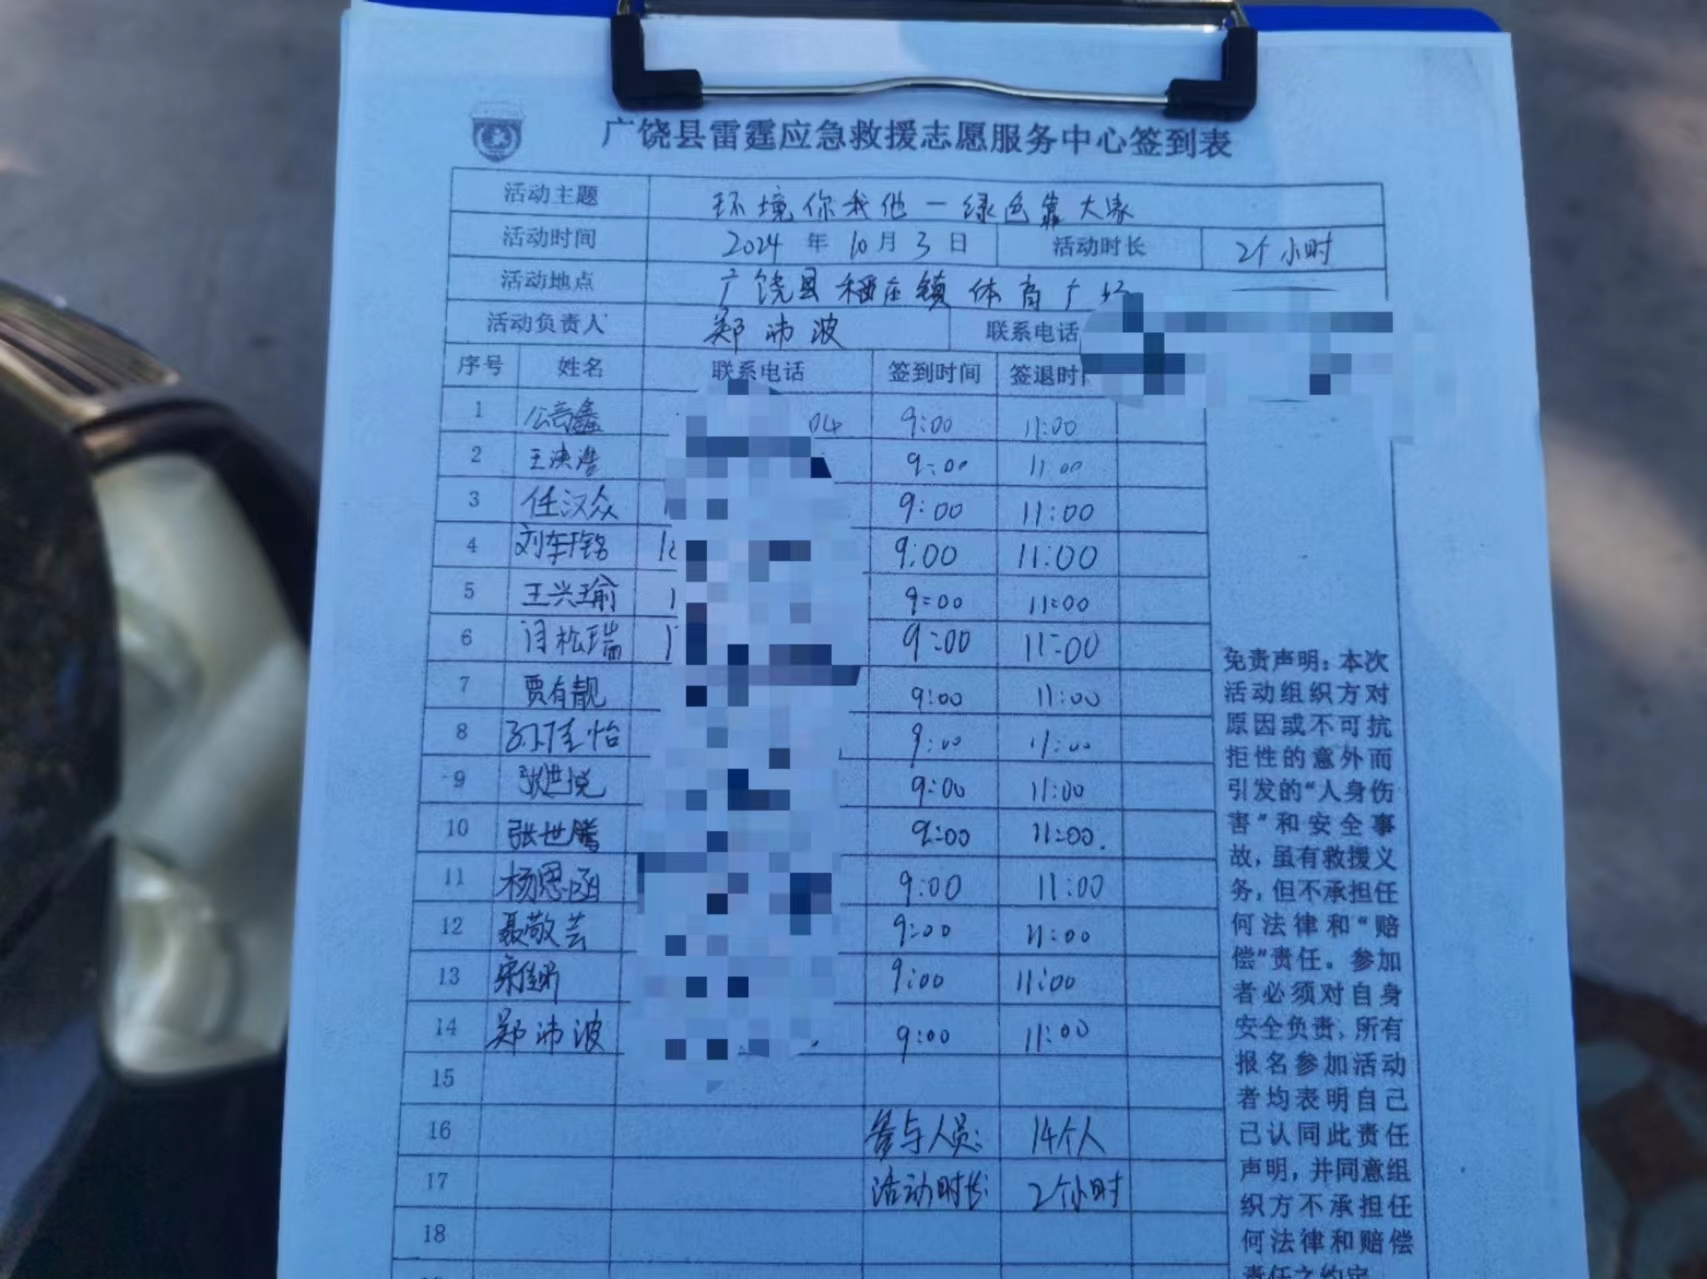 广饶县雷霆应急救援志愿服务中心签到表
活动主题 环境你我他一绿色靠大家
活动时间 2024年10月3日 活动时长 2个小时
活动地点 广饶县稻庄镇体育广场
活动负责人 郑沛波 联系电话
序号 姓名 联系电话 签到时间 签退时
1 04 9:00 11:00
2 9:00 11:00
3 任汉众 9:00 11:00
4 9:00 11:00
5 王兴瑜 1 9:00 11:00
6 闫松瑞 1 9:00 11:00
7 贾有靓 9:00 11:00
8 孙佳怡 9:00 11:00
9 张世悦 9:00 11:00
10 张世腾 9:00 11:00.
11 杨思函 9:00 11:00
12 聂敬芸 9:00 11:00
13 9:00 11:00
14 郑沛波 9:00 11:00
15
16 参与人员: 14个人
17 活动时长: 2个小时
18
免责声明：本次
活动组织方对
原因或不可抗
拒性的意外而
引发的“人身伤
害”和安全事
故，虽有救援义
务，但不承担任
何法律和“赔
偿”责任。参加
者必须对自身
安全负责，所有
报名参加活动
者均表明自己
己认同此责任
声明，并同意组
织方不承担任
何法律和赔偿
责任之约定